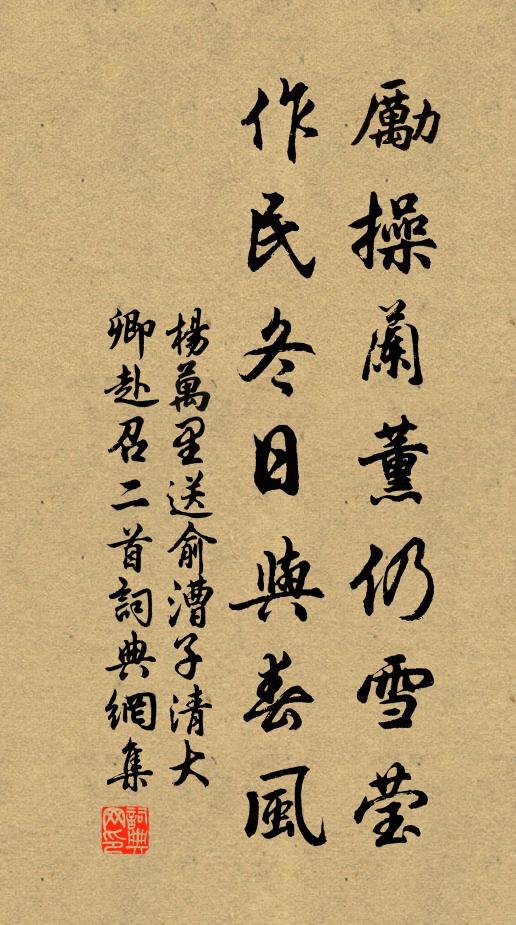 勵操蘭薰仍雪瑩
作民冬日與春風
楊萬里送俞漕子清大
卿赴召二首詞典網集
詞典网印